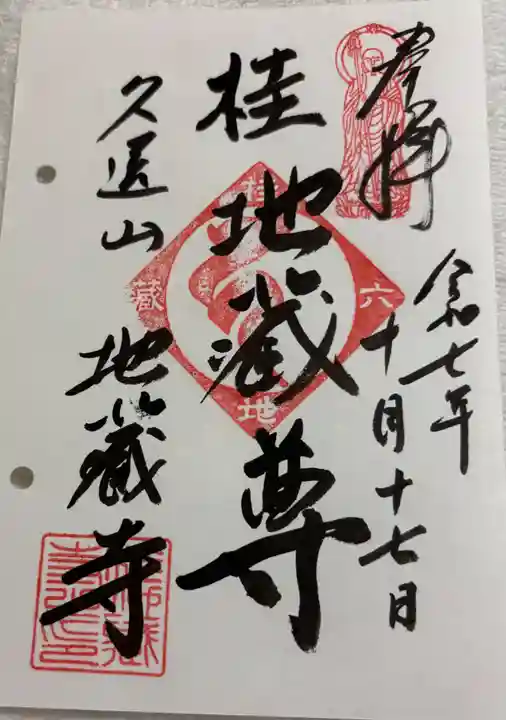 奉拝
令和七年
十月十七日
桂
地蔵尊
六
地
蔵
久遠山
地蔵寺